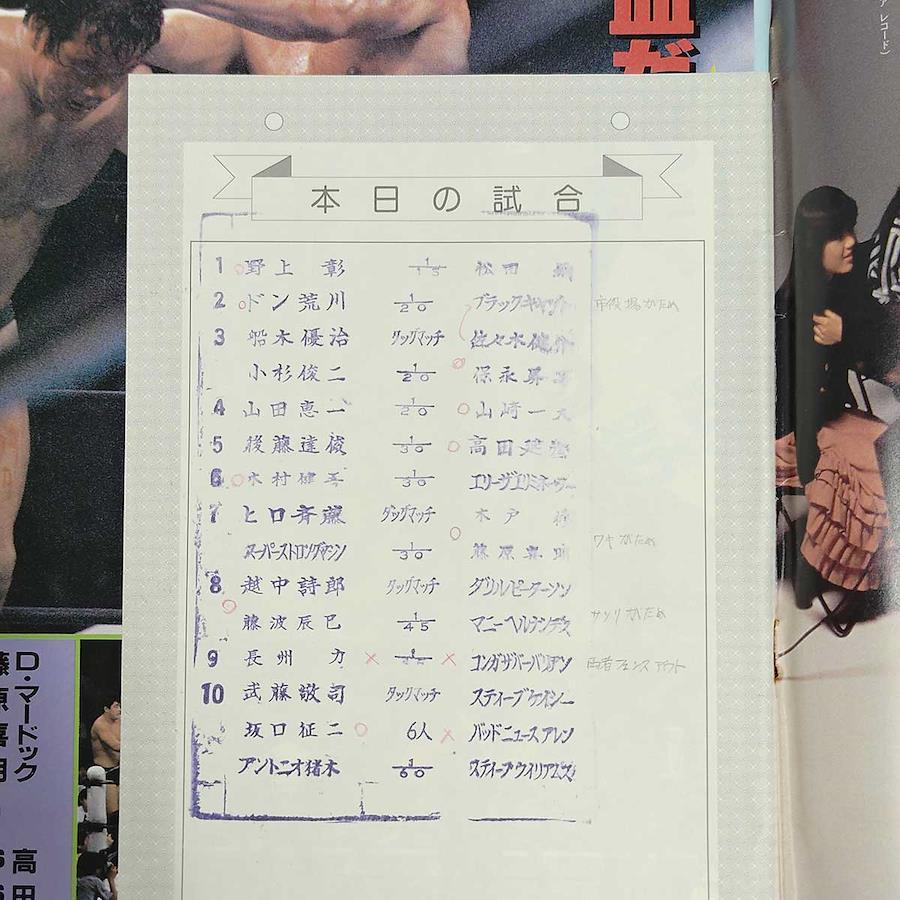 血だ
ア レコード)
本日の試合
1 野上 彰 1/15 松田 納
2 ドン荒川 1/20 ブラックキャット 市役場がため
3 船木優治 タッグマッチ 佐々木健介
小杉俊二 1/20 保永昇男
4 山田恵一 1/20 山崎一夫
5 後藤達俊 1/30 高田延彦
6 木村健吾 1/30 エリージエリミネーター
7 ヒロ斉藤 タッグマッチ 木戸 修
スーパーストロングマシン 1/30 藤原喜明 ワキがため
8 越中詩郎 タッグマッチ ダリルピーターソン
藤波辰巳 1/45 マニーヘルナンデス サソリがため
9 長州 力 × × コンガザバーバリアン 両者フェンスアウト
10 武藤敬司 タッグマッチ スティーブケイシー
坂口征二 6人 × バッドニュースアレン
アントニオ猪木 1/60 スティーブウイリアムス
D・マードック
藤原喜明
高田